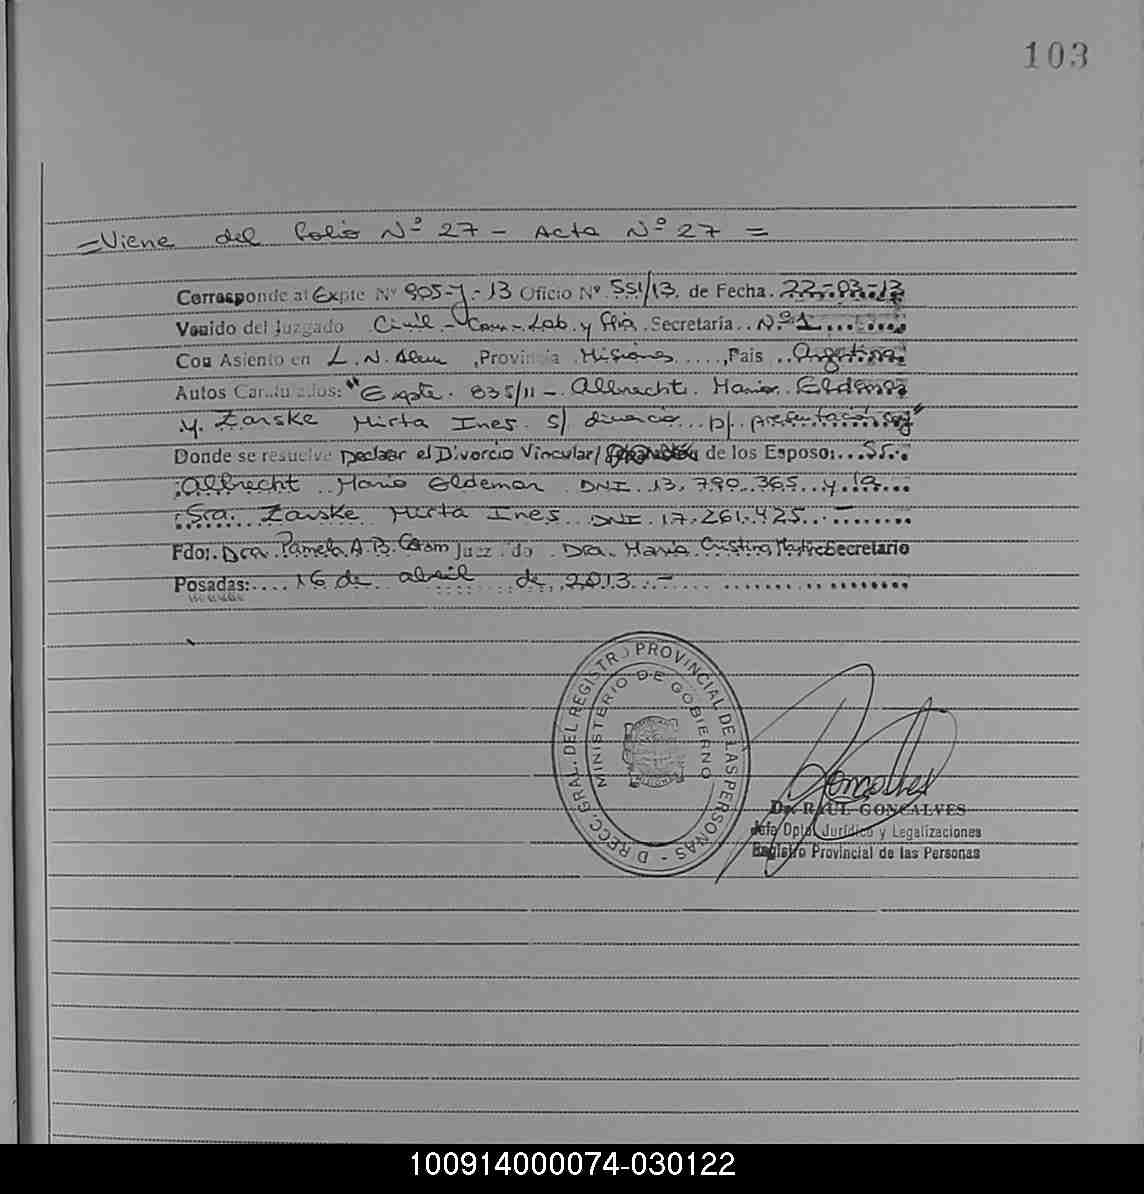 103
=Viene del folio Nº 27 - Acta Nº 27 =
Corresponde al Expte Nº 905-J-13 Oficio Nº 551/13. de Fecha. 22-03-13
Venido del Juzgado Civil-Com-Lab. y flia. Secretaria.. Nº 1
Con Asiento en L. N. Alem ,Provincia Misiones ....,País ..Argentina
Autos Caratulados: "Expte. 835/11 - Albrecht. Mario. Eldemar
y. Zarske Mirta Ines. s/ divorcio.. p/. presentación conj"
Donde se resuelve Declarar el Divorcio Vincular/ de los Esposo:...Sr..
Albrecht Mario Eldemar DNI 13.790.365 y la
Sra. Zarske Mirta Ines DNI 17.261.425
Fdo:. Dra. Pamela A.B. Juez Fdo. Dra. María Cristina Secretario
Posadas:.... 16 de abril de 2013.-
DIRECC. GRAL. DEL REGISTRO PROVINCIAL DE LAS PERSONAS -
MINISTERIO DE GOBIERNO
Dr. RAUL GONCALVES
Jefe Dpto. Jurídico y Legalizaciones
Registro Provincial de las Personas
100914000074-030122